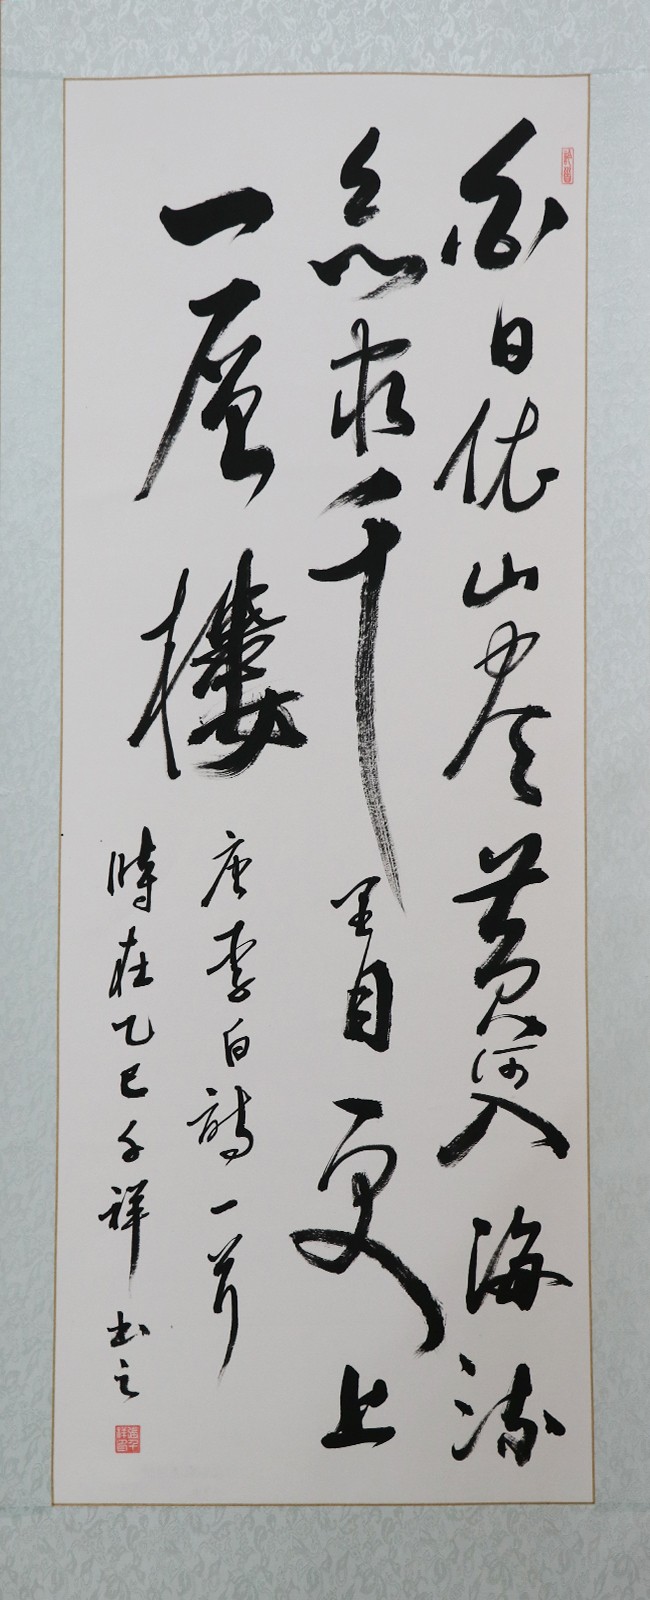 白日依山尽黄河入海流
欲窮千里目更上
一層樓
唐李白詩一首
時在乙巳子祥书之